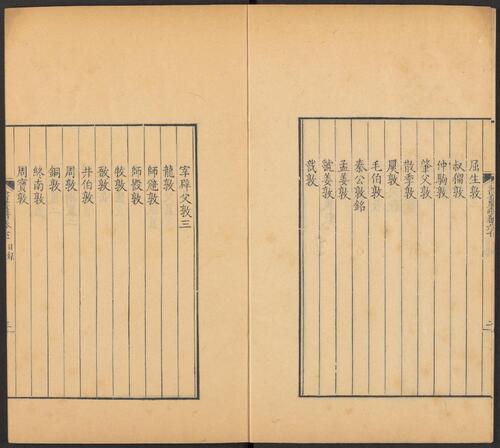 屈生敦
叔倗敦
仲駒敦
肇父敦
散季敦
㞟敦
毛伯敦
秦公敦銘
孟姜敦
虢姜敦
㦰敦
宰辟父敦三
龍敦
師𩛥敦
師㝨敦
牧敦
敔敦
井伯敦
周敦
銅敦
終南敦
周寶敦